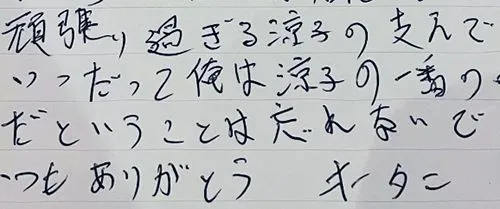 頑張り過ぎる涼子の支えで
いつだって俺は涼子の一番の
だということは忘れないで
いつもありがとう キータニ